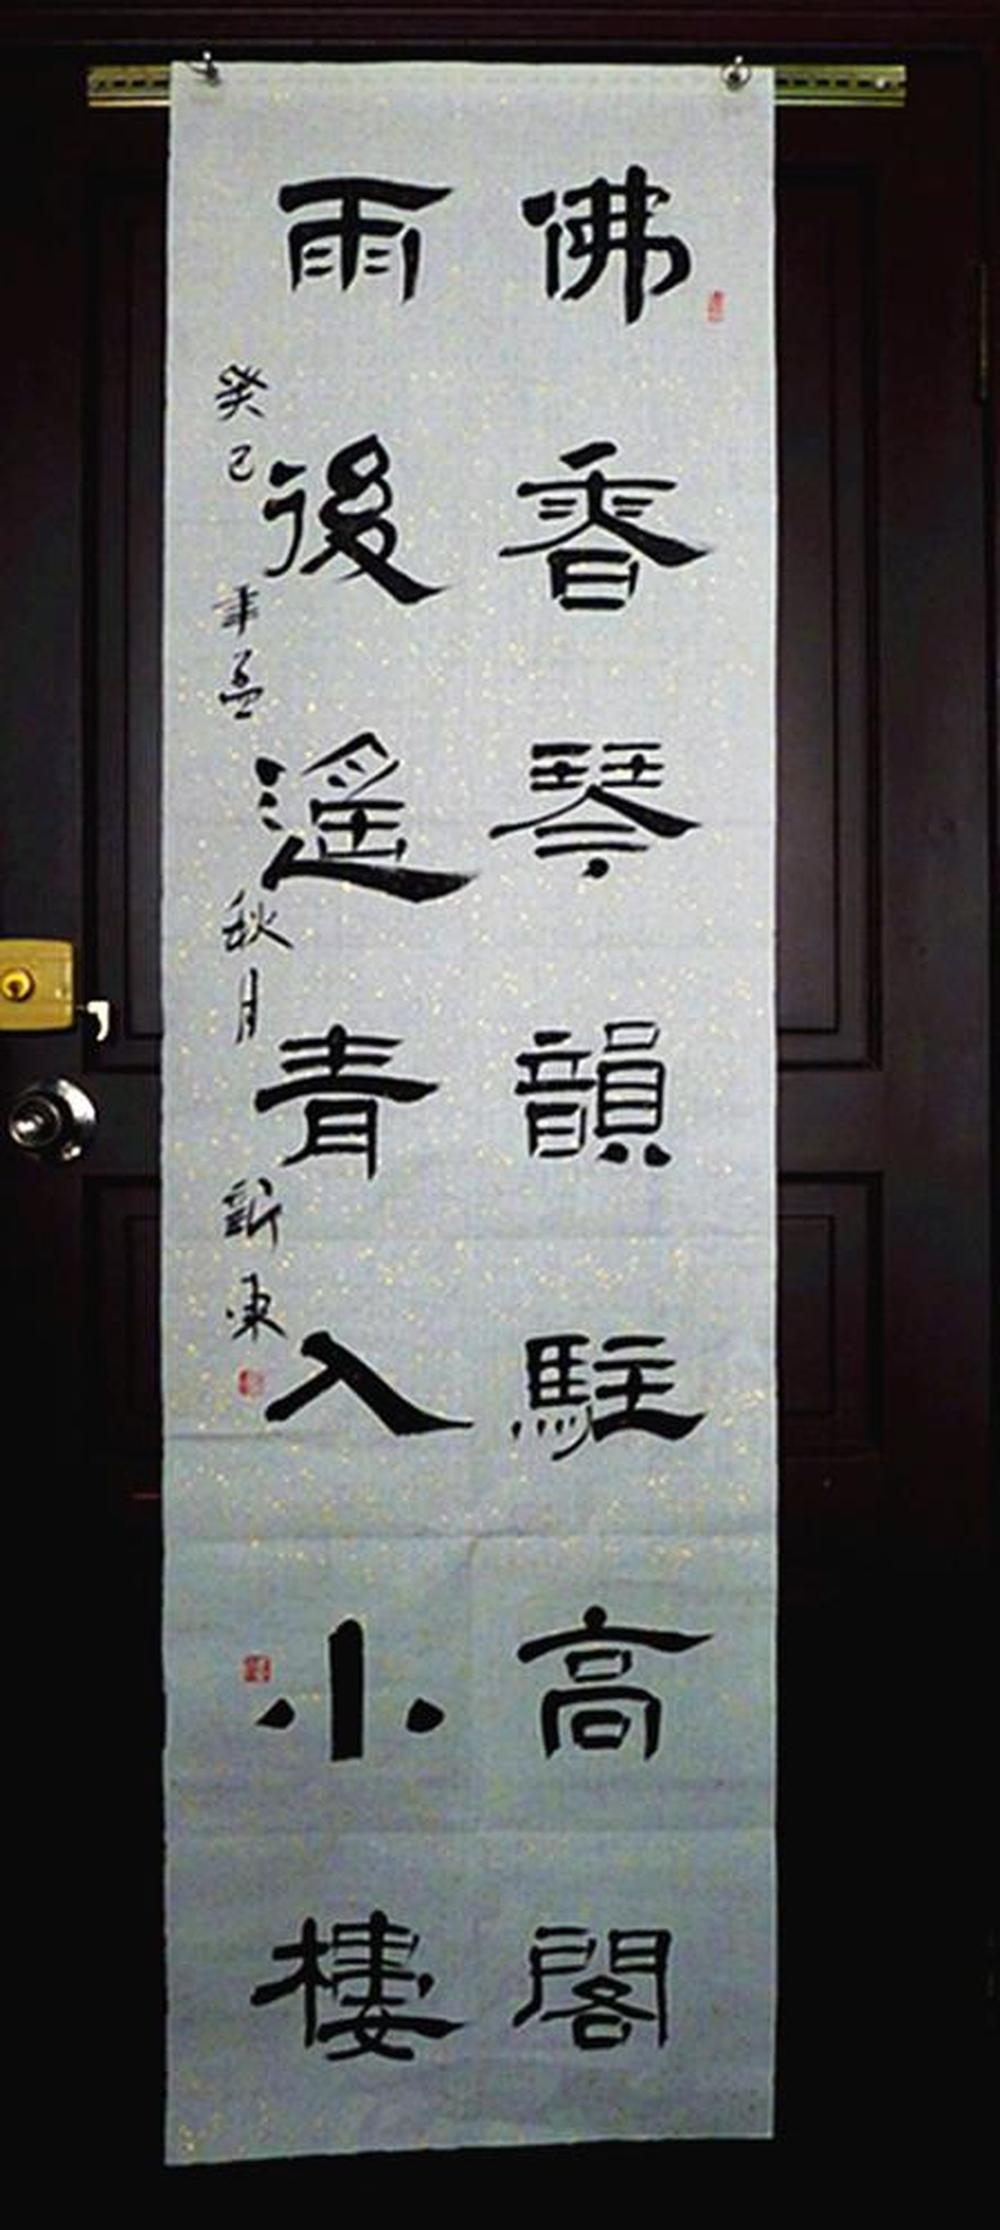 佛香琴韻駐高閣
雨後遥青入小樓
癸巳年孟秋月 新東